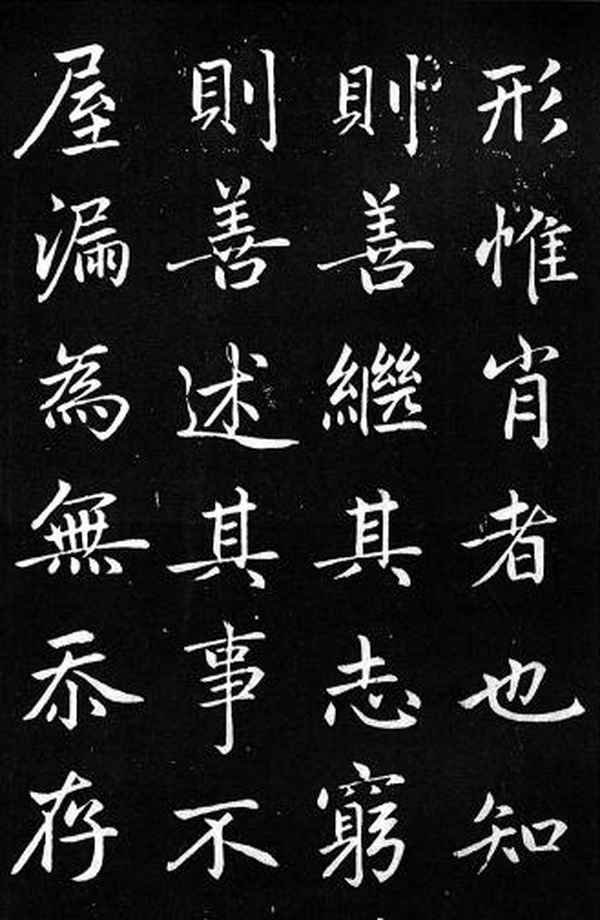 形惟肖者也知
則善繼其志窮
則善述其事不
屋漏為無忝存